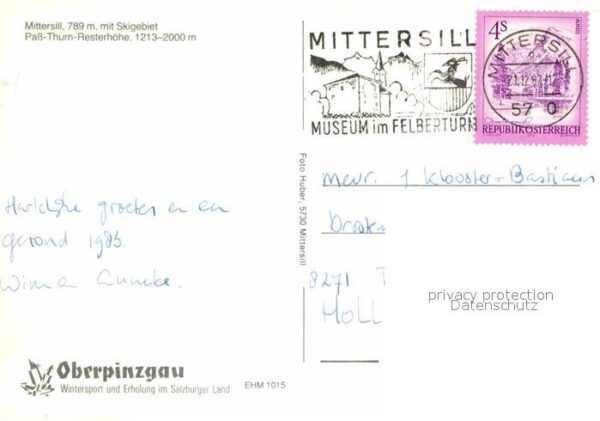 Mittersill, 789 m, mit Skigebiet
Paß-Thurn-Resterhöhe, 1213–2000 m
MITTERSILL
MUSEUM im FELBERTURM
4S
ALMSEE
REPUBLIK ÖSTERREICH
MITTERSILL
21.12.82-12
57 0
Foto Huber, 5730 Mittersill
Hartelijke groeten en een
gezond 1983.
Wim &
mevr. J. Klooster-Bastiaan
8271
privacy protection
Datenschutz
Oberpinzgau
Wintersport und Erholung im Salzburger Land
EHM 1015